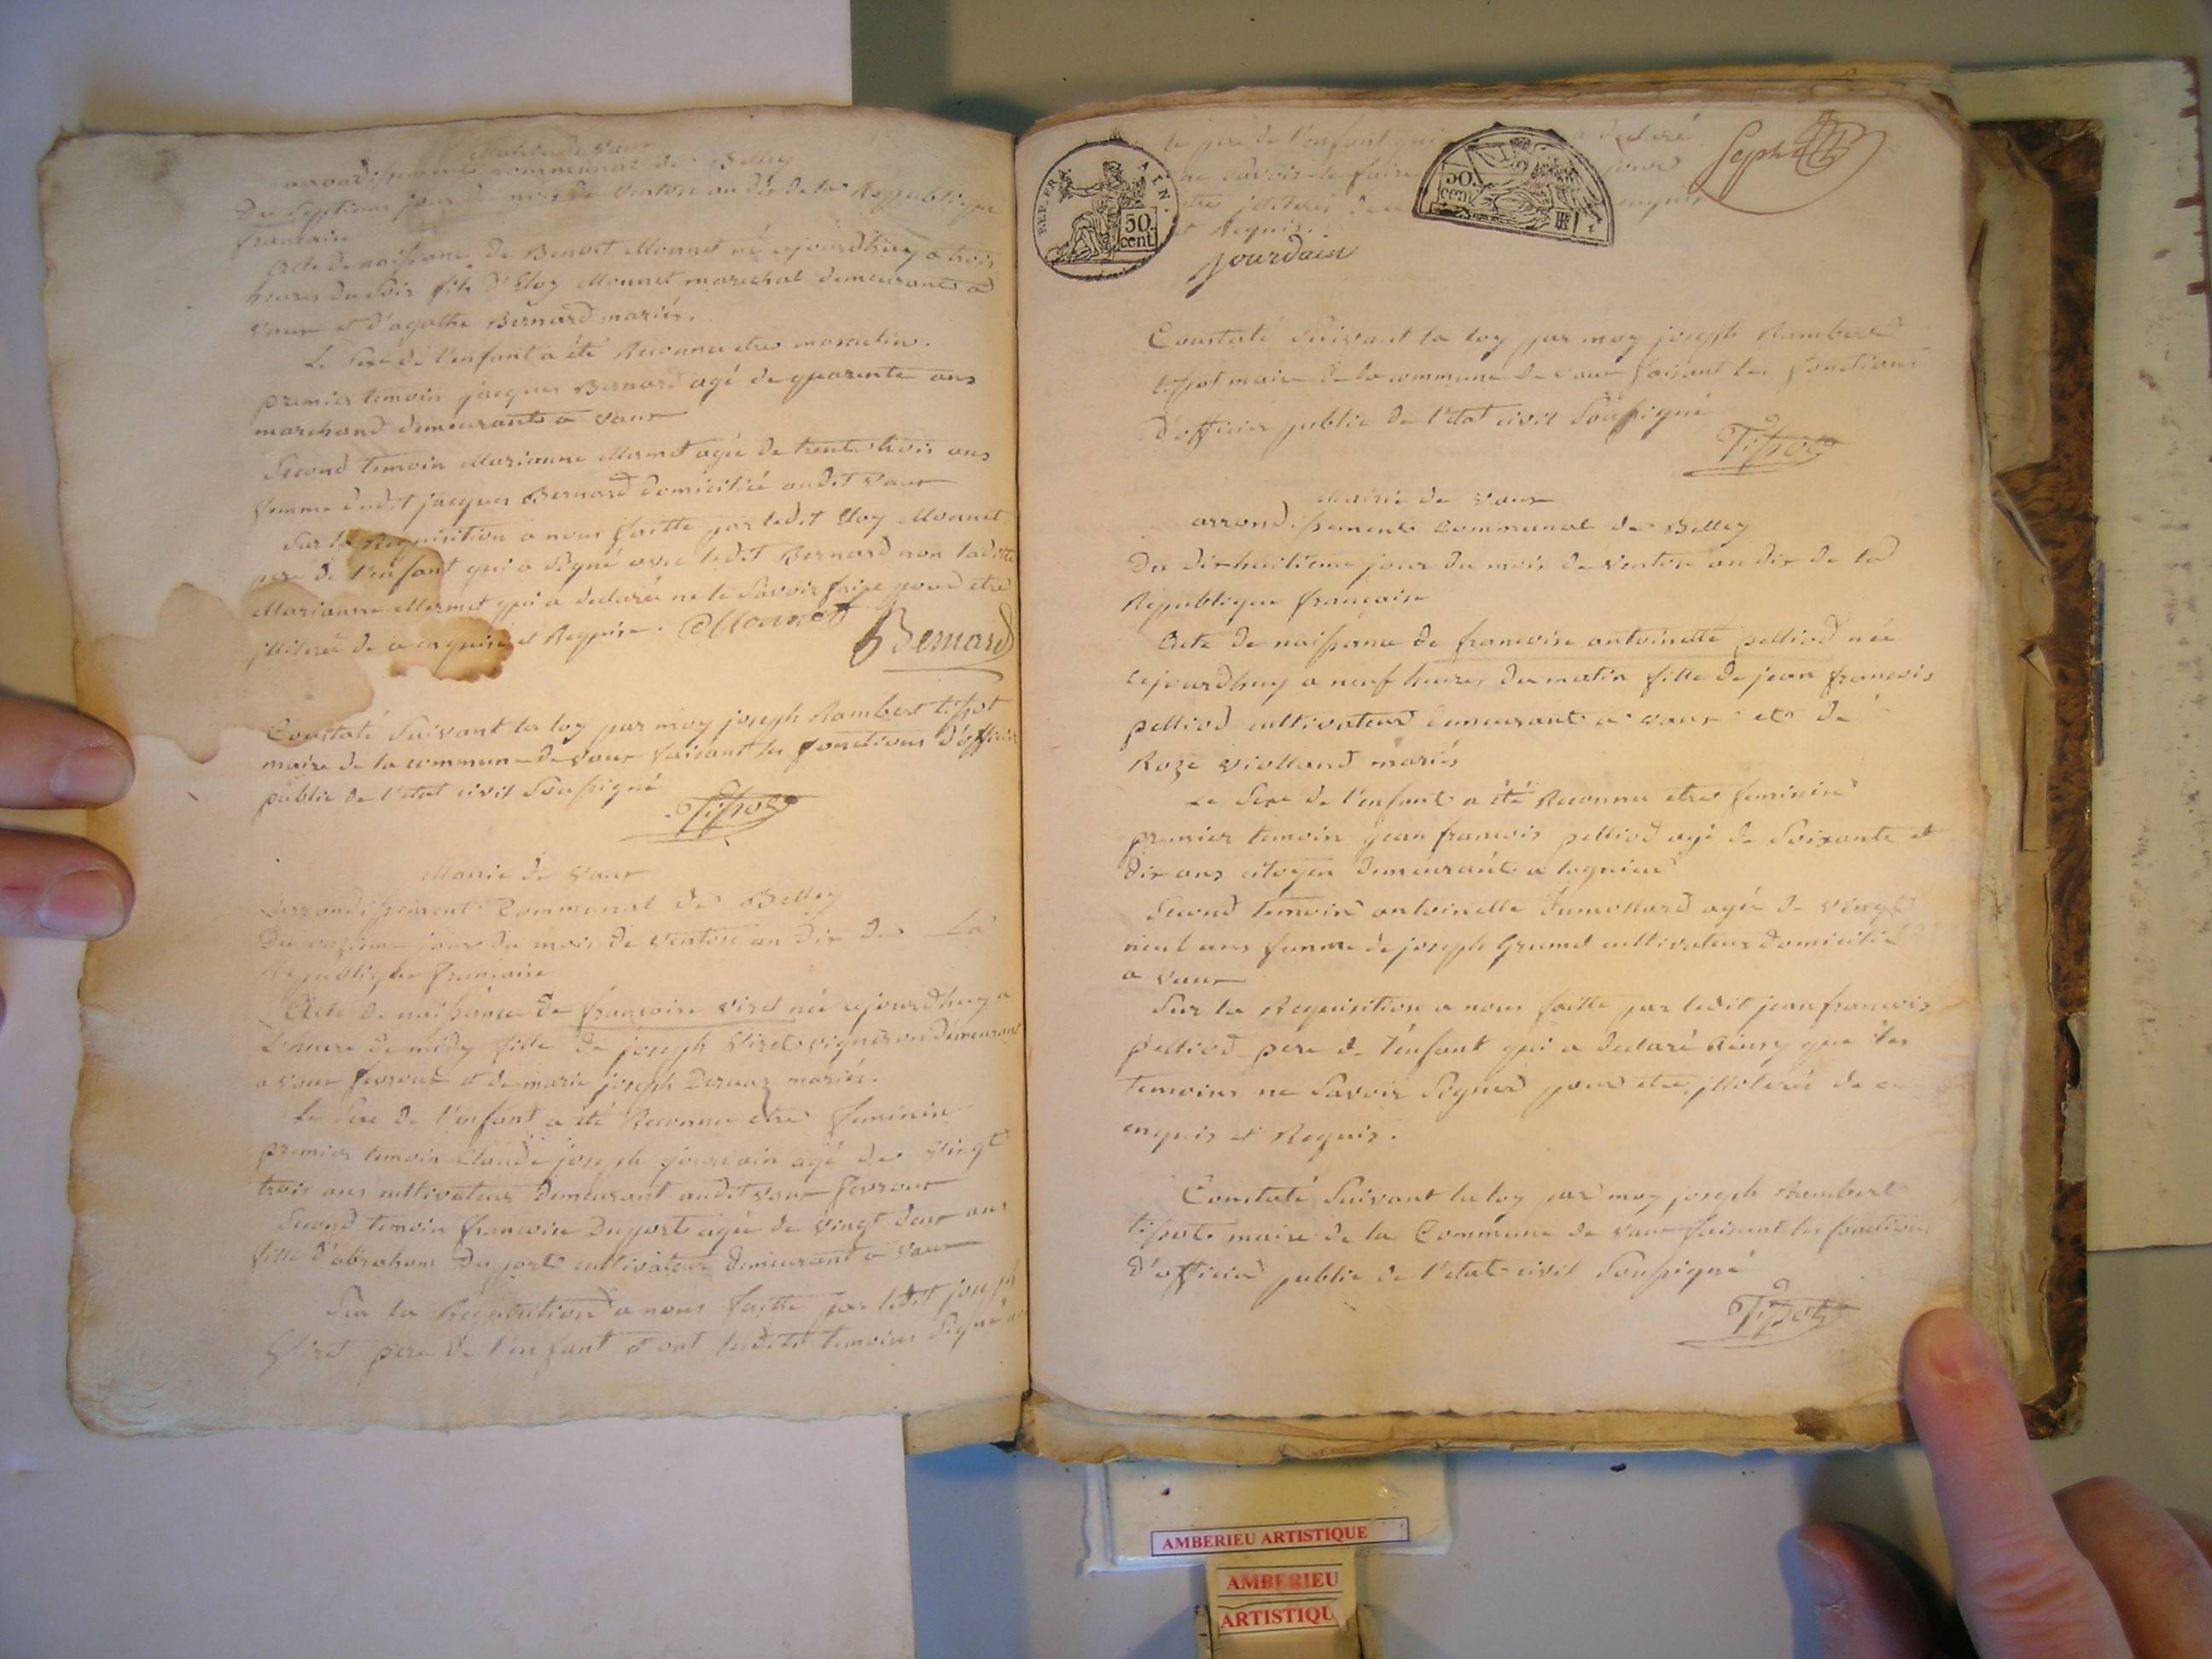 Mairie de Vaux
arrondissement communal de Belley
Du septieme jour du mois de ventose an dix de la Republique
francaise
Acte de naissance de Benoit Monnet né cejourdhuy a trois
heures du soir fils d'Eloy Monnet marechal demeurant a
vaux et d'agathe Bernard mariés.
Le sexe de l'enfant a été Reconnu etre masculin.
premier temoin jacques Bernard agé de quarente ans
marchand demeurant a vaux
second temoin Marianne Mermet agée de trente trois ans
femme dudit jacques Bernard domiciliée audit vaux
sur la Requisition a nous faitte par ledit Eloy Monnet
pere de l'enfant qui a signé avec ledit Bernard non laditte
Marianne Mermet qui a declaré ne le savoir faire pour etre
illiterée de ce enquise et Requise. Monnet Bernard
Constaté suivant la loy par moy joseph Rambert tissot
maire de la commune de vaux faisant les fonctions d'officier
public de l'etat civil soussigné
Tissot
Mairie de vaux
arrondissement Communal de Belley
Du onzieme jour du mois de ventose an dix de La
Republique francaise
Acte de naissance de francoise viret née cejourdhuy a
L'heure de midy fille de joseph Viret vigneron demeurant
a vaux fevroux et de marie joseph Dervaz mariés.
Le sexe de l'enfant a été Reconnu etre feminin
premier temoin Claude joseph jourdain agé de vingt
trois ans cultivateur demeurant audit vaux fevroux
second temoin francoise Duport agée de vingt deux ans
fille d'abraham Duport cultivateur demeurant a vaux
Sur la Requisition a nous faitte par ledit joseph
Viret pere de l'enfant et ont lesdits temoins signé
le pere de l'enfant qui a declaré
ne savoir le faire pour
etre illiteré de ce enquis
et Requis.
jourdain
REP. FRA. AIN.
50. cent.
50. cent.
Constaté suivant la loy par moy joseph Rambert
tissot maire de la commune de vaux faisant les fonctions
D'officier public de l'etat civil soussigné
Tissot
Mairie de vaux
arrondissement Communal de Belley
Du dixhuitieme jour du mois de ventose an dix de la
Republique francaise
Acte de naissance de francoise antoinette pelliod née
cejourdhuy a neuf heures du matin fille de jean francois
pelliod cultivateur demeurant a vaux et de
Roze violland mariés
Le sexe de l'enfant a été Reconnu etre feminin
premier temoin jean francois pelliod agé de soixante et
dix ans citoyen demeurant a lagnieu
second temoin antoinette Dumollard agée de vingt
neuf ans femme de joseph Grumet cultivateur domicilié
a vaux
Sur la Requisition a nous faitte par ledit jean francois
pelliod pere de l'enfant qui a declaré Ainsy que les
temoins ne savoir signer pour etre illiterés de ce
enquis et Requis.
Constaté suivant la loy par moy joseph Rambert
tissot maire de la Commune de vaux faisant les fonctions
D'officier public de l'etat civil soussigné
Tissot
AMBERIEU ARTISTIQUE
AMBERIEU
ARTISTIQU